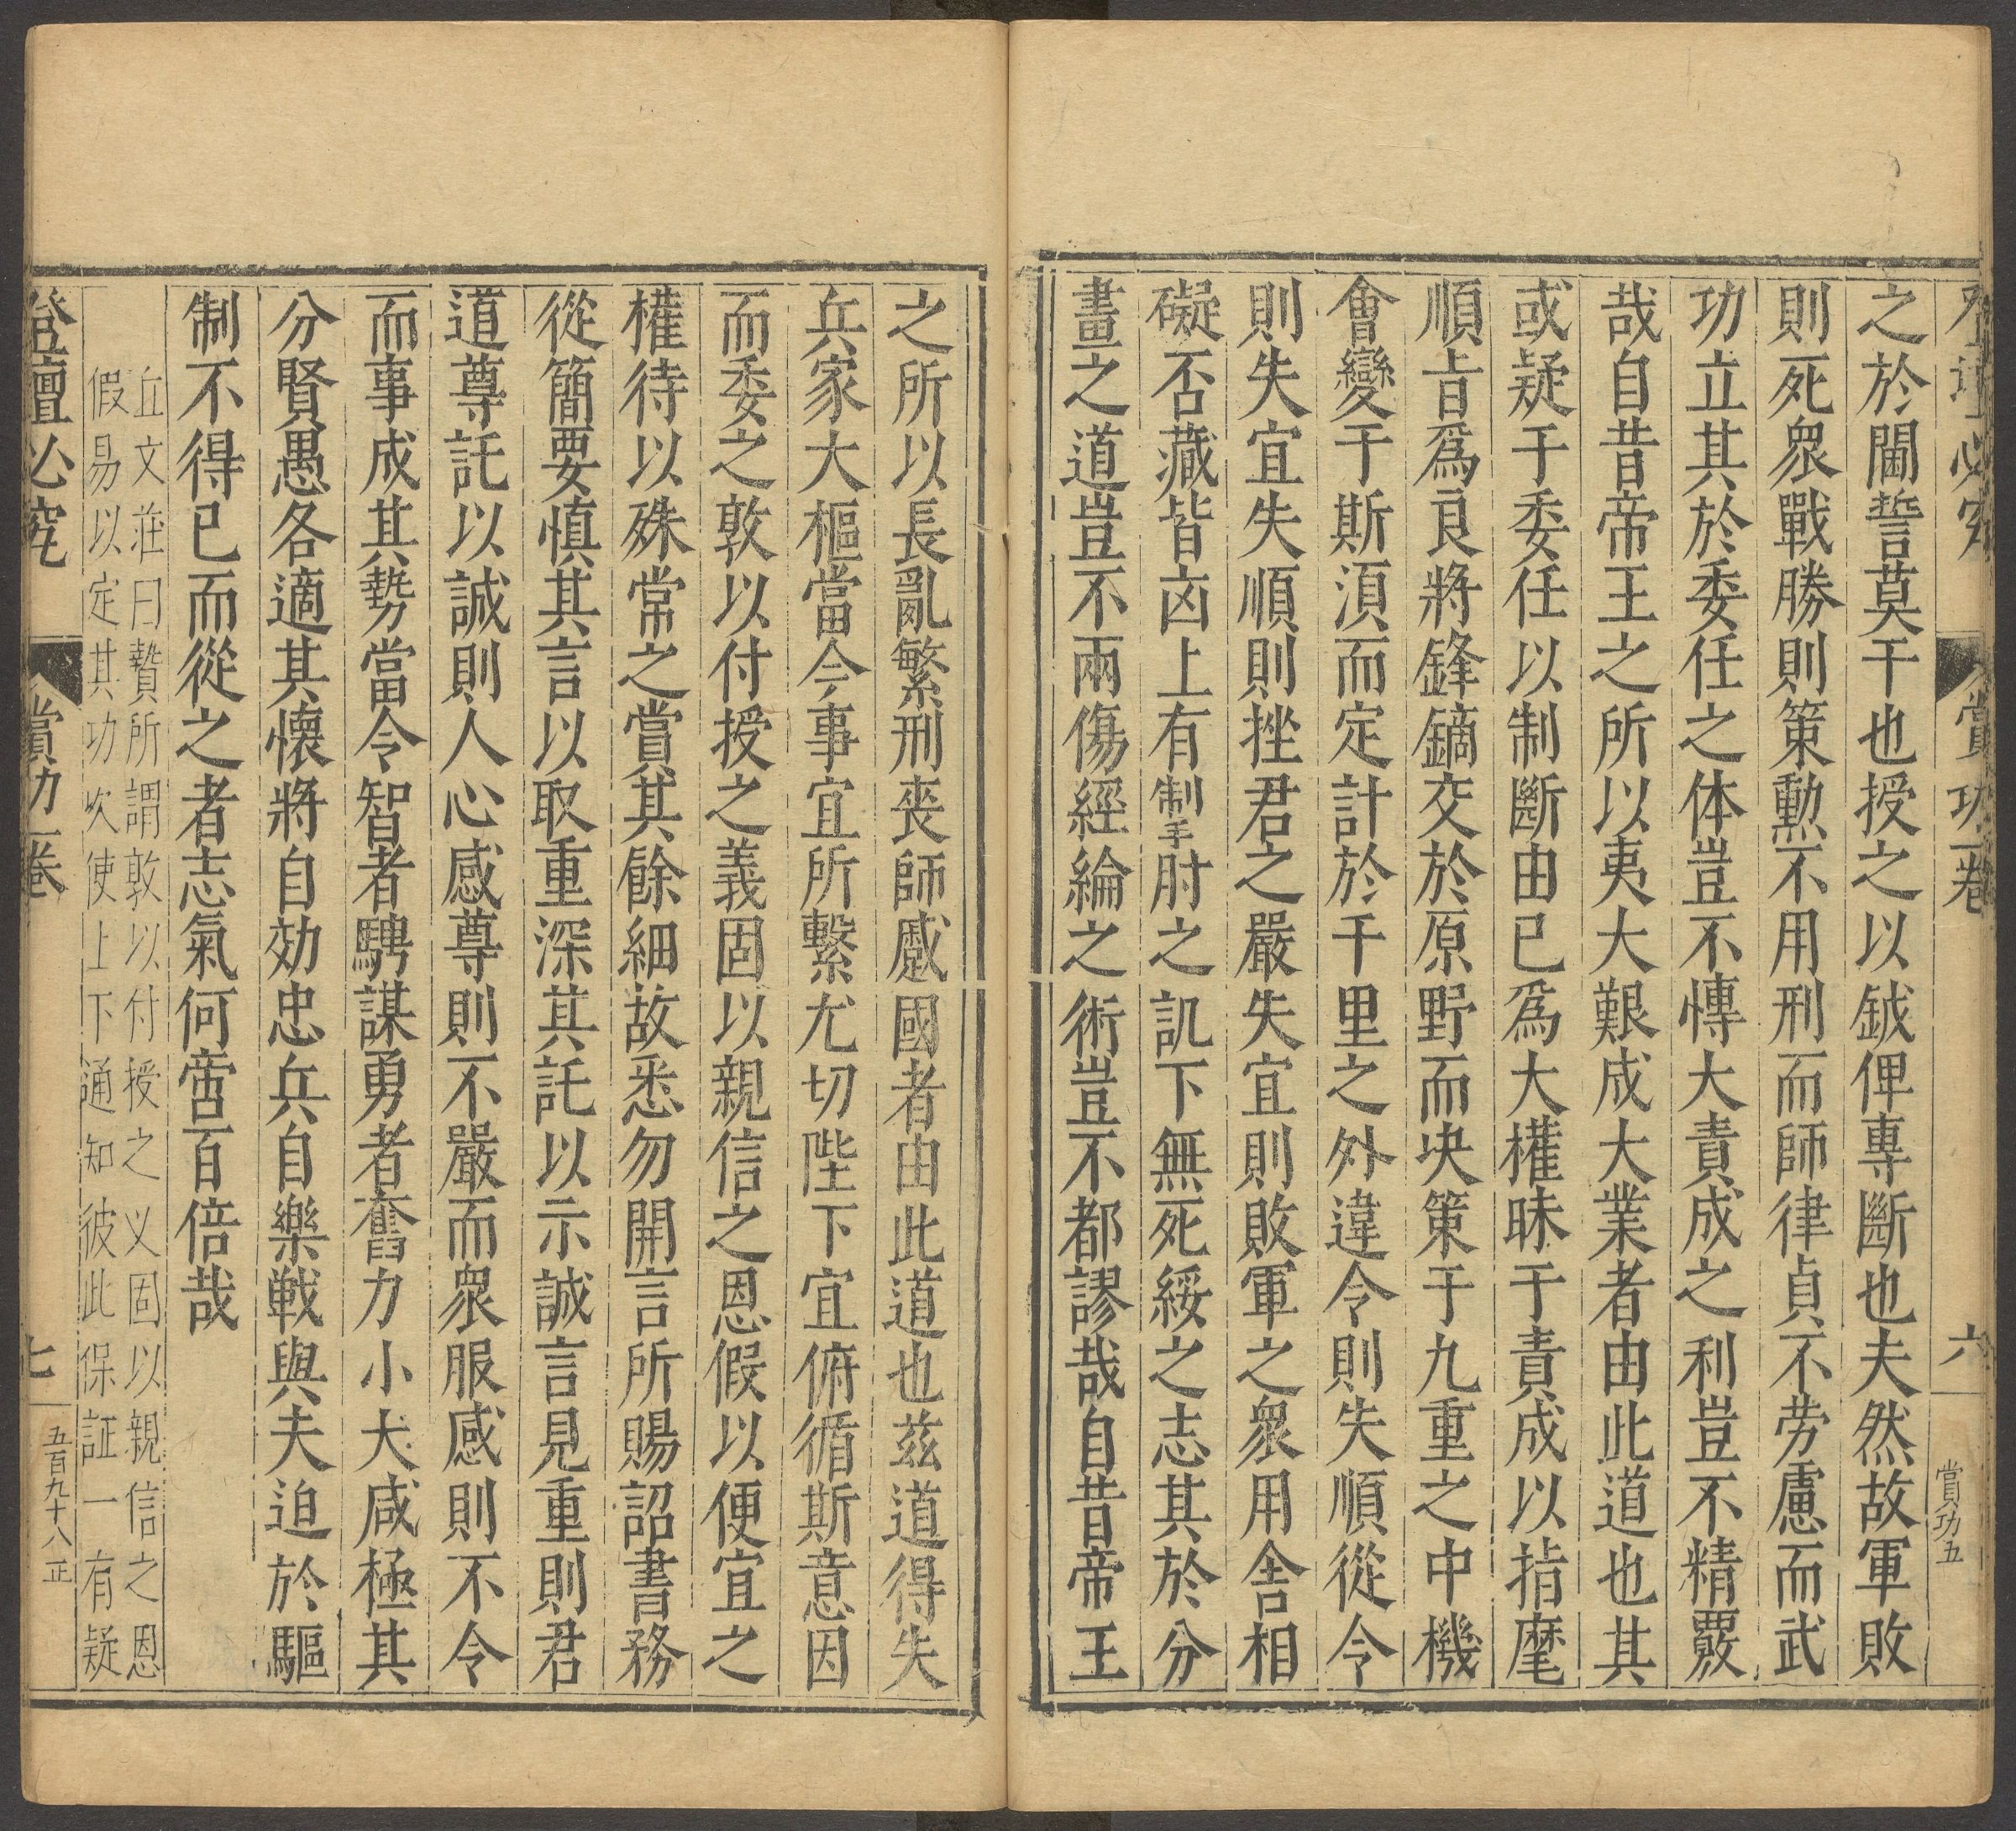 登壇必究 賞功一卷 六 賞功五
之於閫誓莫干也授之以鉞俾專斷也夫然故軍敗
則死衆戰勝則策勲不用刑而師律貞不劳慮而武
功立其於委任之体豈不慱大責成之利豈不精覈
哉自昔帝王之所以夷大艱成大業者由此道也其
或疑于委任以制斷由已爲大權昧于責成以指麾
順旨爲良將鋒鏑交於原野而决策于九重之中機
會變于斯湏而定計於千里之外違令則失順從令
則失宜失順則挫君之嚴失宜則敗軍之衆用舍相
礙否藏皆㐫上有掣肘之訊下無死綏之志其於分
畫之道豈不兩傷經綸之術豈不都謬哉自昔帝王
之所以長亂繁刑喪師蹙國者由此道也兹道得失
兵家大樞當今事宜所繫尤切陛下宜俯循斯意因
而委之敦以付授之義固以親信之恩假以便宜之
權待以殊常之賞其餘細故悉勿開言所賜詔書務
從簡要慎其言以取重深其託以示誠言見重則君
道尊託以誠則人心感尊則不嚴而衆服感則不令
而事成其勢當令智者騁謀勇者奮力小大咸極其
分賢愚各適其懷將自効忠兵自樂戰與夫迫於驅
制不得已而從之者志氣何啻百倍哉
丘文莊曰贄所謂敦以付授之义固以親信之恩
假易以定其功必使上下通知彼此保証一有疑
登壇必究 賞功一卷 七 五百九十八正